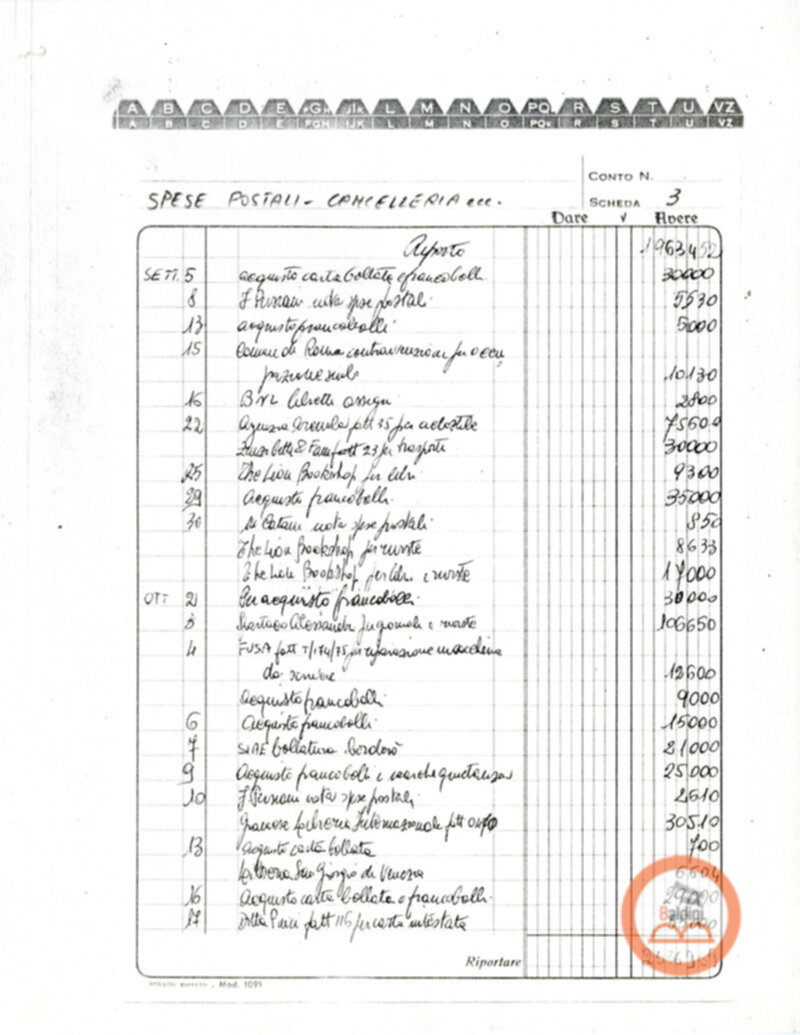 A B C D E FGH IJK L M N O PQ R S T U VZ
A B C D E FGH IJK L M N O PQ R S T U VZ
CONTO N.
SPESE POSTALI - CANCELLERIA ecc. SCHEDA 3
Dare √ Avere
Riporto 1963452
SETT. 5 acquisto carta bollata e francobolli 30000
8 nota spese postali 5530
13 acquisto francobolli 5000
15 Comune di Roma contravvenzione per occu
pazione suolo 10130
16 BNL libretto assegni 2800
22 Agenzia fatt 35 per ciclostile 75600
fatt 23 per trasporti 30000
25 The Lion Bookshop per libri 9300
29 Acquisto francobolli 35000
30 nota spese postali 850
The Lion Bookshop per riviste 8633
The Lion Bookshop per libri e riviste 17000
OTT 2 Per acquisto francobolli 30000
3 Alessandro per giornali e riviste 106650
4 FUSA fatt per riparazione macchina
da scrivere 12600
Acquisto francobolli 9000
6 Acquisto francobolli 15000
7 SIAE bollatura borderò 21000
9 Acquisto francobolli e marche quietanza 25000
10 nota spese postali 2610
Libreria Internazionale fatt 30510
13 Acquisto carta bollata 700
Libreria San Giorgio di Venezia 6504
16 Acquisto carta bollata e francobolli
17 Ditta fatt 116 per carta intestata
Baldini
Riportare
Mod. 1091